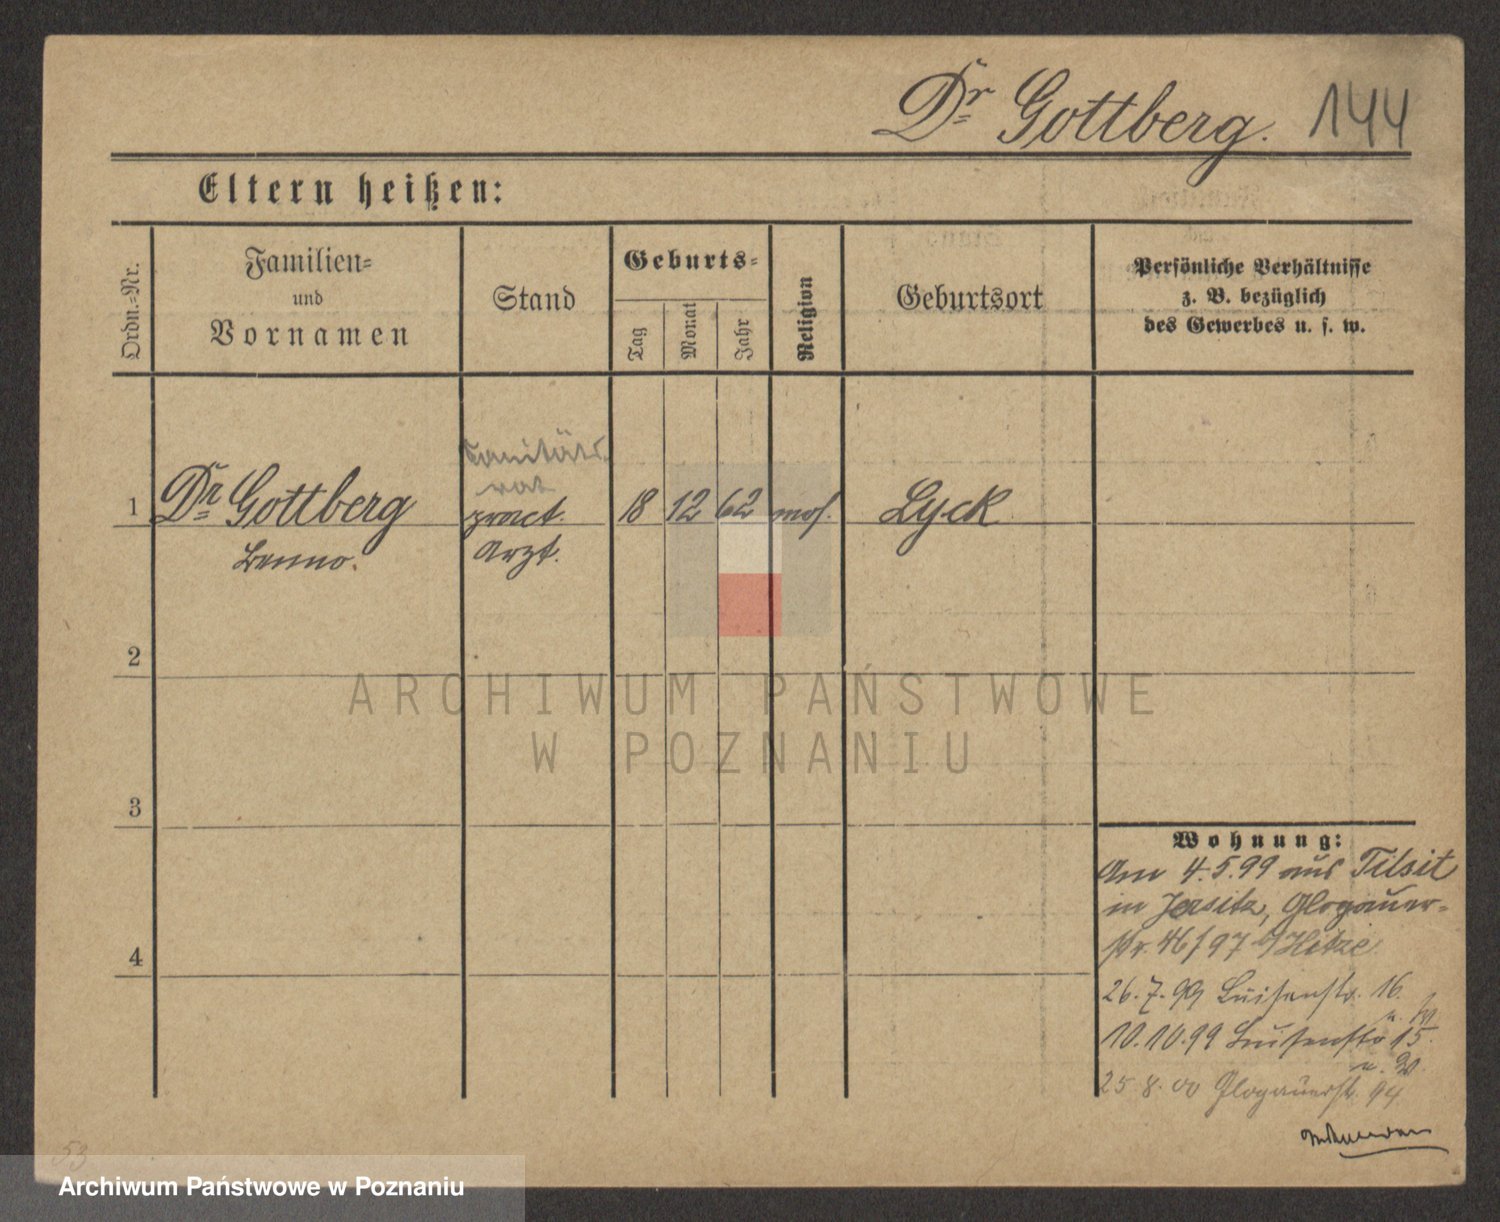 Dr Gottberg. 144
Eltern heißen:
Ordn.-Nr.
Familien-
und
Vornamen
Stand
Geburts-
Tag
Monat
Jahr
Religion
Geburtsort
Persönliche Verhältnisse
z. B. bezüglich
des Gewerbes u. s. w.
Sanitäts-
rat
1 Dr Gottberg pract. 18 12 62 mos. Lyck
Benno. Arzt.
2
3
4
ARCHIWUM PAŃSTWOWE
W POZNANIU
Wohnung:
Am 4.5.99 aus Tilsit
in Jersitz, Glogauer-
str. 46/97 b/Hitze
26.7.99 Luisenstr. 16
10.10.99 Luisenstr 15.
25.8.00 Glogauerstr. 94
53
Archiwum Państwowe w Poznaniu